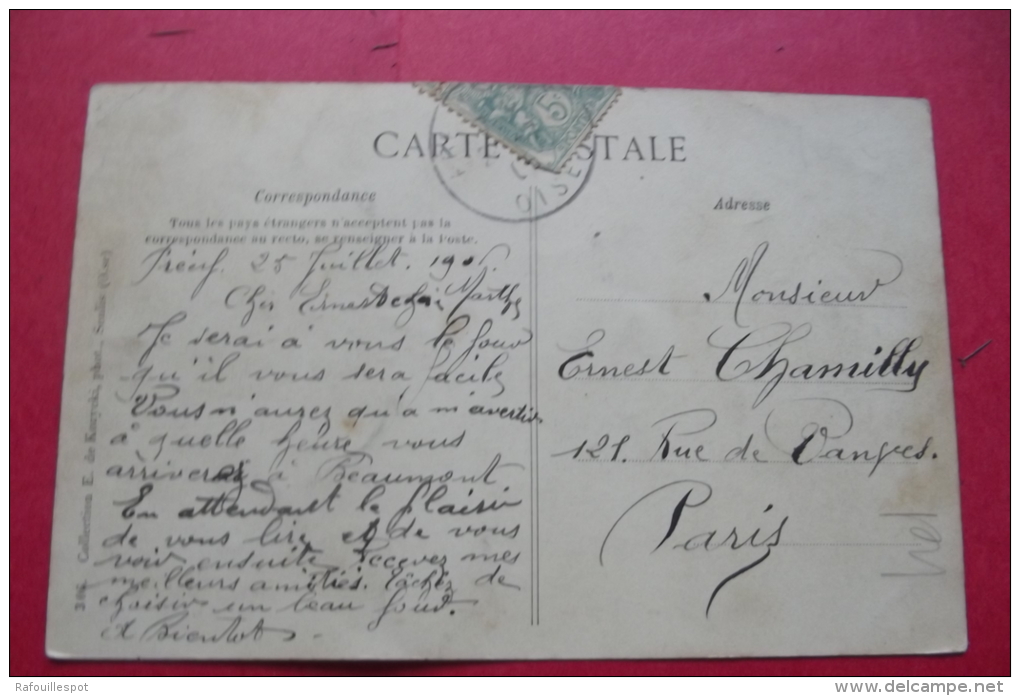 5
CARTE POSTALE
OISE
Correspondance
Tous les pays étrangers n'acceptent pas la
correspondance au recto, se renseigner à la Poste.
Adresse
25 Juillet. 190
Cher Ernest Marthe
Je serai à vous le jour
qu'il vous sera facile
Vous n'aurez qu'à m'avertir
à quelle heure vous
arriverez à Beaumont
En attendant le plaisir
de vous lire et de vous
voir ensuite Recevez mes
meilleurs amitiés. Tâchez de
choisir un beau jour.
et Bientot
Monsieur
Ernest Chamilly
121. Rue de Vanves.
Paris
Collection E. de phot., Senlis (Oise)
Rafouillespot
www.delcampe.net